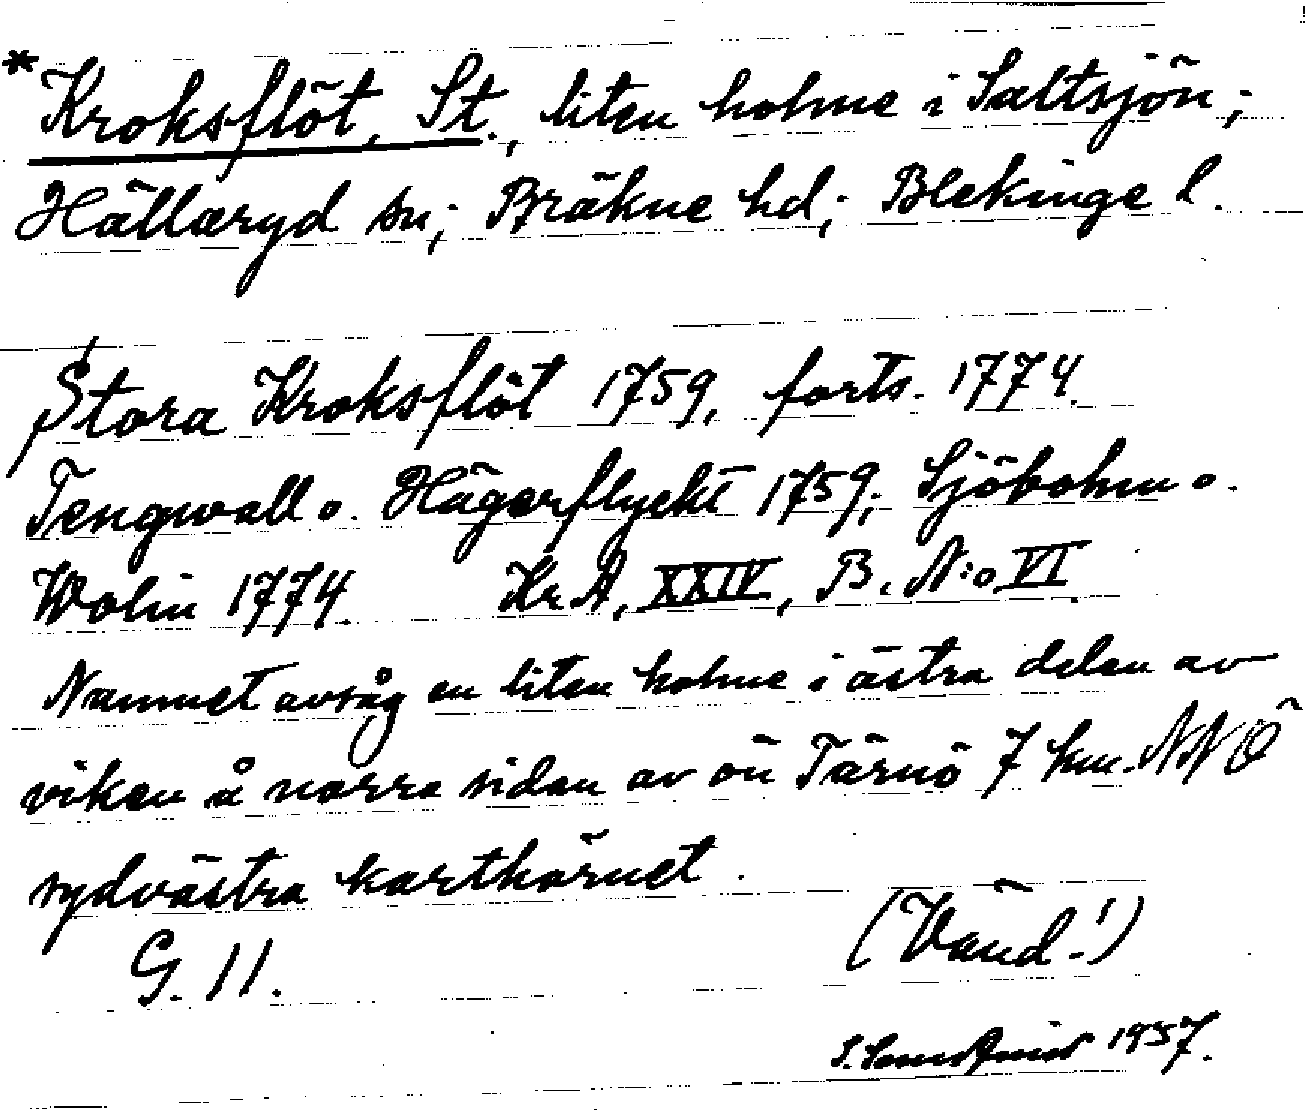 *Kroksflöt, St., liten holme i Saltsjön;
Hällaryd sn; Bräkne hd; Blekinge l.
Stora Kroksflöt 1759, forts. 1774.
Tengwall o. Hägerflyckt 1759; Sjöbohm o.
Wolin 1774. Kr. A, XXIV, B. N:o VI.
Namnet avsåg en liten holme i östra delen av
viken å norra sidan av ön Tärnö 7 km. NNÖ
sydvästra karthörnet.
G. 11. (Vänd!)
1957.